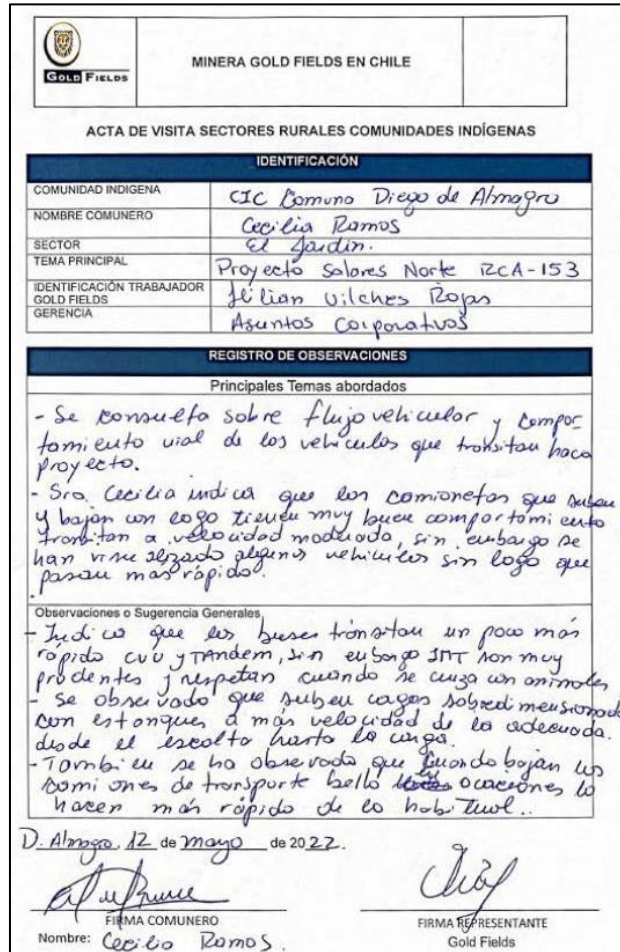 GOLD FIELDS
MINERA GOLD FIELDS EN CHILE
ACTA DE VISITA SECTORES RURALES COMUNIDADES INDÍGENAS
IDENTIFICACIÓN
COMUNIDAD INDIGENA CIC Comuna Diego de Almagro
NOMBRE COMUNERO Cecilia Ramos
SECTOR El Jardin.
TEMA PRINCIPAL Proyecto Salares Norte RCA-153
IDENTIFICACIÓN TRABAJADOR GOLD FIELDS Vilches Rojas
GERENCIA Asuntos Corporativos
REGISTRO DE OBSERVACIONES
Principales Temas abordados
- Se consulta sobre flujo vehicular y compor
tamiento vial de los vehiculos que transitan hacia
proyecto.
- Sra. Cecilia indica que las camionetas que suben
y bajan con logo tienen muy buen comportamiento
transitan a velocidad moderada, sin embargo se
han visualizado algunos vehiculos sin logo que
pasan mas rápido.
Observaciones o Sugerencia Generales
- Indica que los buses tránsitan un poco más
rápido CVU y TAndem, sin embargo SMT son muy
prudentes y respetan cuando se cruza con animales
- Se observado que suben cargas sobredimensionada
con estanques a más velocidad de la adecuada.
desde el escolta hasta la carga.
- Tambien se ha observado que cuando bajan los
camiones de transporte bello ocaciones lo
hacen más rápido de lo habitual..
D. Almagro, 12 de mayo de 2022.
FIRMA COMUNERO
Nombre: Cecilia Ramos.
FIRMA REPRESENTANTE
Gold Fields